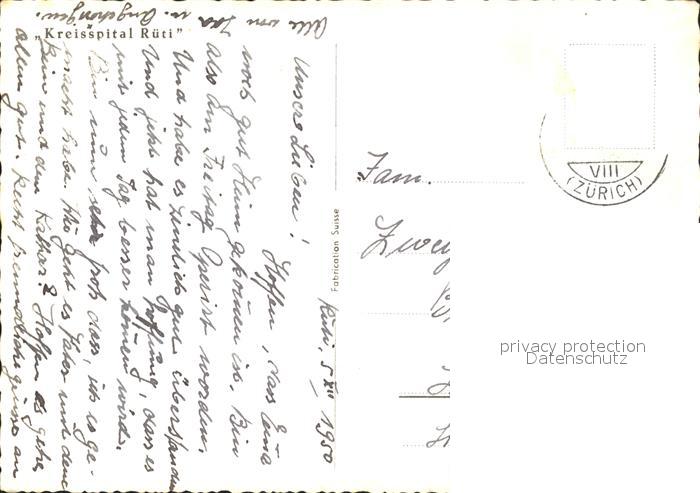 „Kreisspital Rüti"
Rüti, 5 XII 1950
Unsere Lieben!
Hoffen, dass Euna
noch gut Heim gekommen ist. Bin
also am Freitag Operirt worden.
Und habe es ziemlich gut überstanden
Und jetzt hat man Hoffnung, dass es
mit jedem Tag besser können wird.
Bin nun sehr froh dass, ich es ge-
macht habe. Wie geht es Vater und dem
Keini und den Kathar? Hoffen es gehe
allen gut. Recht freundliche Grüsse an
Alle von Ida u. Angehörigen.
Fabrication Suisse
Fam.
VIII
(ZÜRICH)
privacy protection
Datenschutz